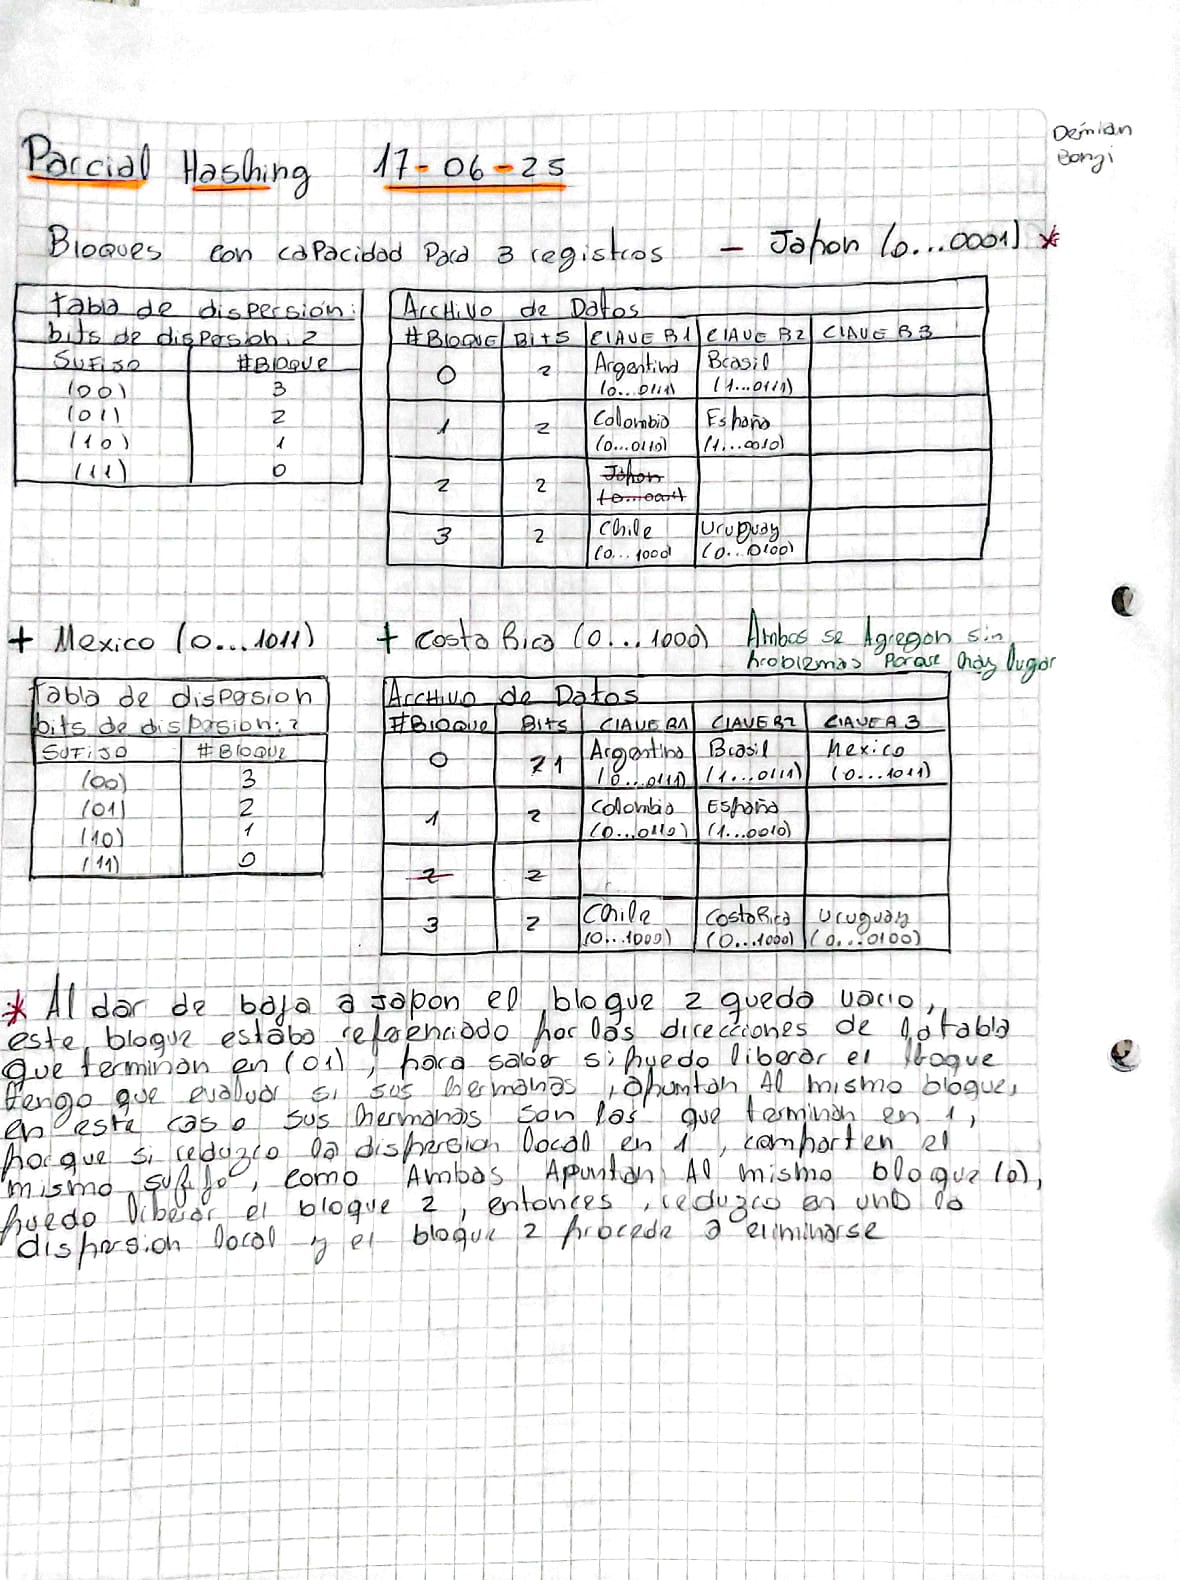 Demian
Bongi
Parcial Hashing 17-06-25
Bloques con capacidad para 3 registros - Japon (0...0001) *
tabla de dispersión:
bits de dispersion: 2
SUFIJO #Bloque
(00) 3
(01) 2
(10) 1
(11) 0
Archivo de Datos
#Bloque Bits CLAVE B1 CLAVE B2 CLAVE B3
0 2 Argentina (0...0111) Brasil (1...0111)
1 2 Colombia (0...0110) España (1...0010)
2 2 Japon (0...0001)
3 2 Chile (0...1000) Uruguay (0...0100)
+ Mexico (0...1011) + Costa Rica (0...1000) Ambos se Agregan sin
problemas porque hay lugar
Tabla de dispersion
bits de dispersion: 2
SUFIJO #Bloque
(00) 3
(01) 2
(10) 1
(11) 0
Archivo de Datos
#Bloque Bits CLAVE B1 CLAVE B2 CLAVE B3
0 2 1 Argentina (0...0111) Brasil (1...0111) Mexico (0...1011)
1 2 Colombia (0...0110) España (1...0010)
2 2
3 2 Chile (0...1000) Costa Rica (0...1000) Uruguay (0...0100)
* Al dar de baja a Japon el bloque 2 queda vacio,
este bloque estaba referenciado por las direcciones de la tabla
que terminan en (01), para saber si puedo liberar el bloque
tengo que evaluar si sus hermanas, apuntan Al mismo bloque,
en este caso sus hermanas son las que terminan en 1,
porque si reduzco la dispersion local en 1, comparten el
mismo sufijo, como Ambas Apuntan Al mismo bloque (0),
puedo liberar el bloque 2, entonces, reduzco en uno la
dispersion local y el bloque 2 procede a eliminarse